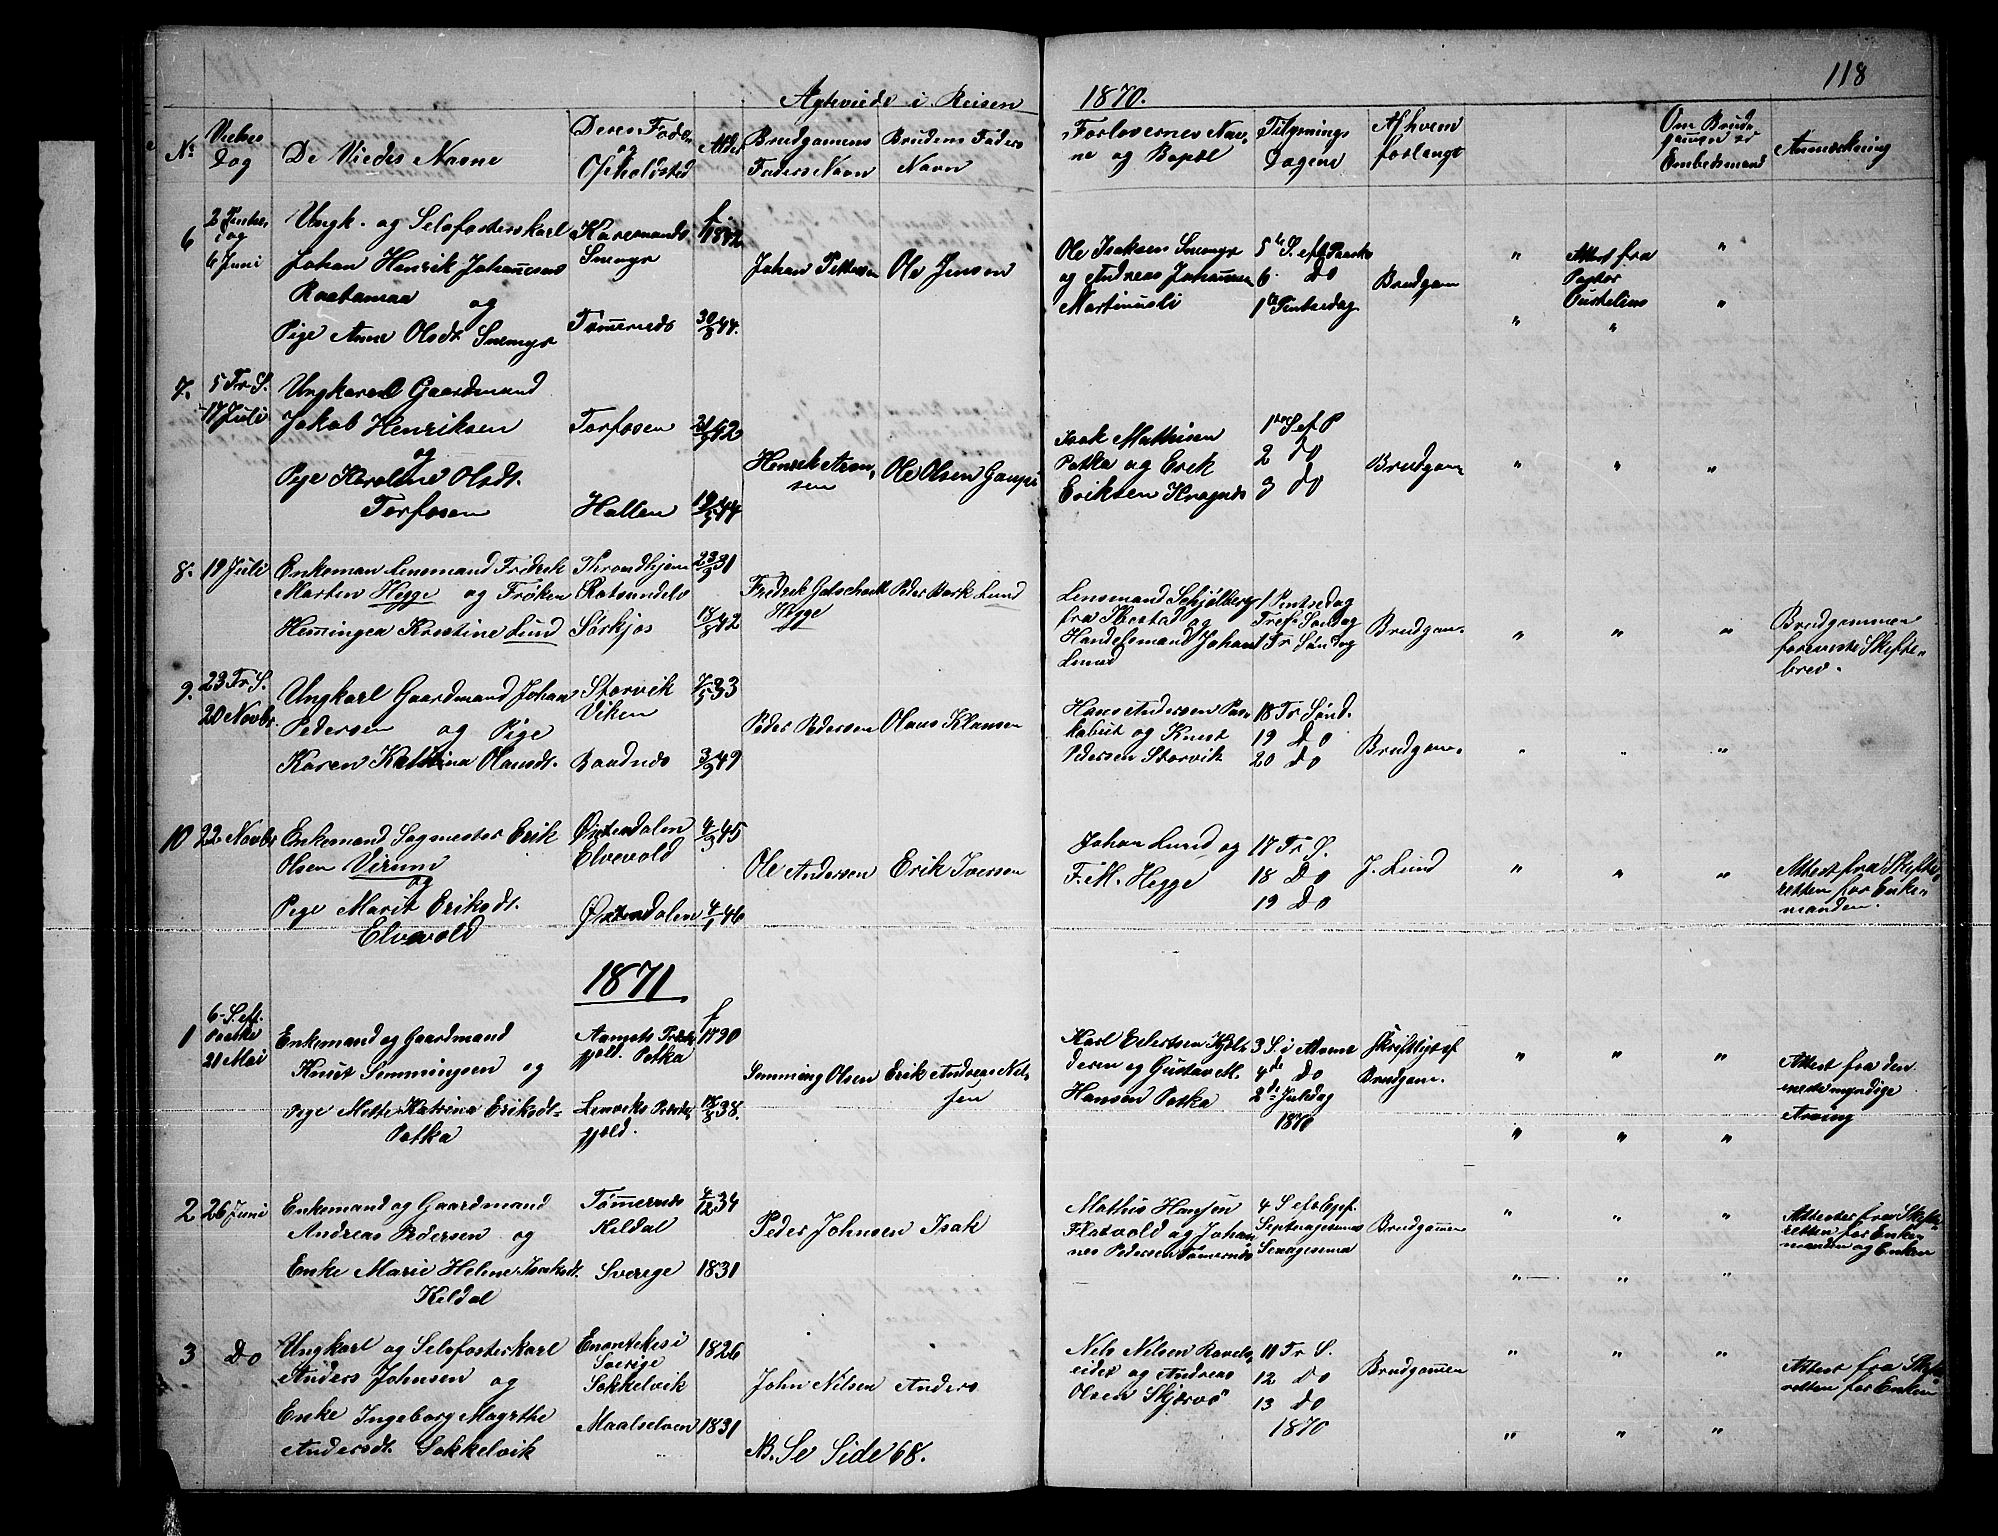 118
Ægteviede i Reisen 1870.
No
Vielses
Dag
De Viedes Navne
Deres Føde-
og
Opholdssted
Alder
Brudgomens
Faders Navn
Brudens Faders
Navn
Forlovernes Nav-
ne og Bopæl
Tilysnings
Dagene
Af hvem
forlangt
Om Brud-
gomen er
Embedsmand
Anmærkning
6
6 Juni
Ungk. og Selvfosterskarl
Johan Henrik Johannesen
Raatamaa og
Pige Anne Olsdt. Snemyr
Snemyr
Tømernæs
f. 1842
30/8 44.
Johan Pettersen
Ole Jensen
Ole Isaksen Snemyr
og Andreas Johannesen
Martinusli
5te S. eft Paaske
6. Do
1te Pintsedag
Brudgom
"
Attest fra
Pastor
"
"
"
"
7.
5 Tr. S.
17 Juli
Ungkarl Gaardmand
Jakob Henriksen
og
Pige Karoline Olsdt.
Torfosen
Torfosen
Hallen
42
44
Henrik Aron-
sen
Ole Olsen
Isak Mathisen
Potka og Erik
Eriksen Kragnæs
1te S ef P
2 Do
3 Do
Brudgom
"
"
"
8.
19 Juli
Enkeman Lensmand Fredrik
Marten Hegge og Frøken
Hemmingea Kristine Lund
Throndhjem
Rotsundelv
Sørkjos
23/9 31
42
Fredrik Gotschalk
Hegge
Peder Bark Lund
Lensmand Schjølberg
fra Ibestad og
Handelsmand Johan
Lund
1 Pintsedag
Tref. Søndag
1 Tr Søndag
Brudgom.
"
"
"
Brudgommen
foreviste Skifte-
brev.
9.
23 Tr. S.
20 Novbr.
Ungkarl Gaardmand Johan
Pedersen og Pige
Karen Katrina Olausdt.
Storvik
Viken
Baadnes
33
3/9 49
Peder Pedersen
Olaus Klausen
Hans Andersen
og Knut
Pedersen Storvik
18 Tr Sønd.
19 Do
20 Do
Brudgom.
"
"
"
10
22 Novbr
Enkemand Sagmester Erik
Olsen Virum
og
Pige Marit Eriksdt.
Elvevold
Østerdalen
Elvevold
Østerdalen
4/3 45
4/1 46
Ole Andersen
Erik Iversen
Johan Lund og
F. M. Hegge
17 Tr. S.
18 Do
19 Do
J. Lund
"
"
"
Attest fra Skifte-
retten for Enke-
manden.
1871
1
6. S. eft.
Paaske
21 Mai
Enkemand og Gaardmand
Knut Semmingsen og
Pige Mette Katrina Eriksdt.
Potka
Potka
Lenviks Præste-
gjeld.
f 1790
18/8 38.
Semming Olsen
Erik Andreas Niel-
sen
Karl Edertsen
og Gustav M.
Hansen Potka
3 S. i Advent
4de Do
2de Juledag
1870
Skriftligt af
Brudgom.
"
"
"
"
"
"
Attest fra den
eneste myndige
Arving
2
26 Juni
Enkemand og Gaardmand
Andreas Pedersen og
Enke Marie Helene Isaksdt.
Kildal
Tømernæs
Kildal
Sverige
4/12 34
1831
Peder Johnsen
Isak
Mathis Hansen
Flatvold og Johan-
nes Pedersen Tømernæs
4 S eft Epif.
Septuagesima
Sexagesima
Brudgommen
"
"
"
"
"
"
Attester fra Skifte-
retten for Enke-
manden og Enken
3
Do
Ungkarl og Selvfosterskarl
Anders Johnsen og
Enke Ingeborg Magrthe
Andersdt. Sokkelvik
Enontekes i
Sverige
Sokkelvik
Maalselven
1826
1831
John Nilsen
Anders
NB. Se Side 68.
Nils Nilsen Ravels-
eidet og Andreas
Olsen Skjervø
11 Tr S.
12 Do
13 Do
1870
Brudgommen
"
"
"
"
"
"
Attest fra Skifte-
retten for Enken